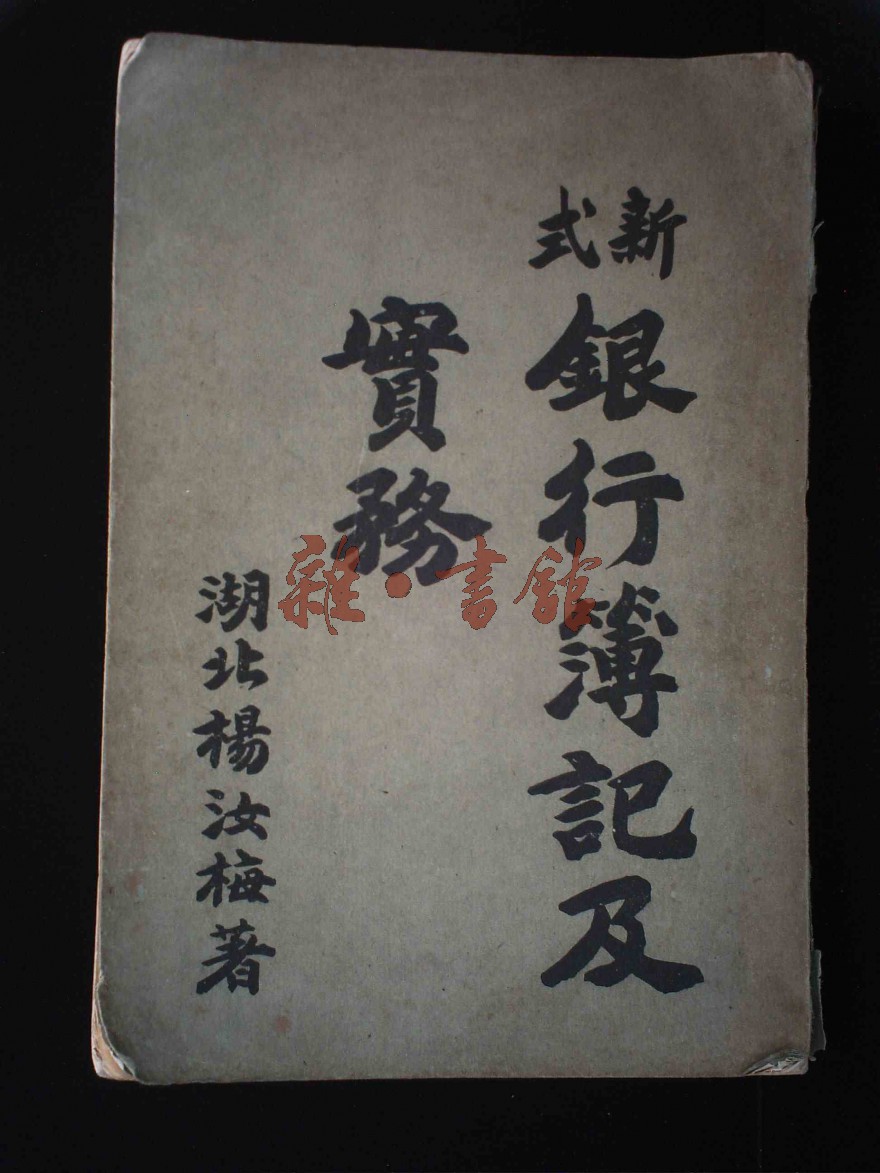 新式
銀行簿記及
實務
湖北楊汝梅著
雜·書館